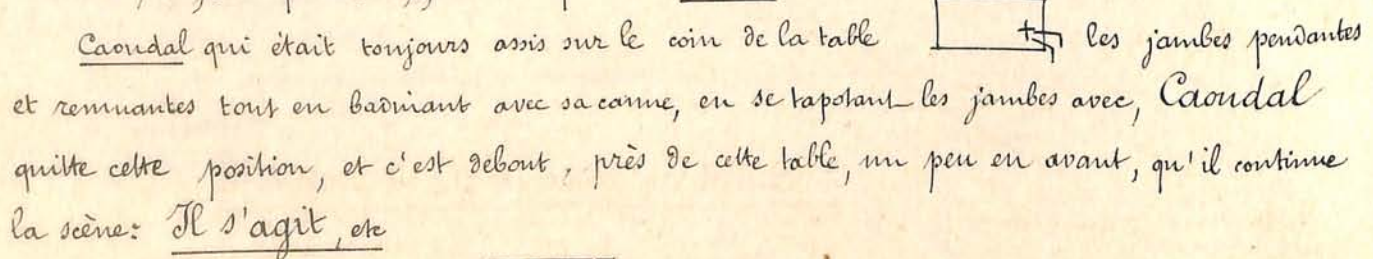 Caoudal qui était toujours assis sur le coin de la table les jambes pendantes
et remuantes tout en badinant avec sa canne, en se tapotant les jambes avec, Caoudal
quitte cette position, et c'est debout, près de cette table, un peu en avant, qu'il continue
la scène: Il s'agit, etc